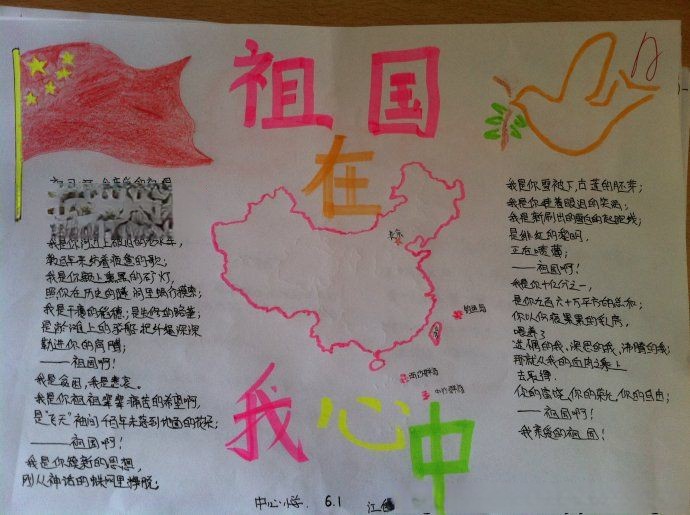 祖 国
在
我 心 中
我是你河边上破旧的老水车,
数百年来纺着疲惫的歌;
我是你额上熏黑的矿灯,
照你在历史的隧洞里蜗行摸索;
我是干瘪的稻穗;是失修的路基;
是淤滩上的驳船 把纤绳深深
勒进你的肩膊;
——祖国啊!
我是贫困,我是悲哀。
我是你祖祖辈辈痛苦的希望啊,
是"飞天"袖间 千百年未落到地面的花朵;
——祖国啊!
我是你簇新的思想,
刚从神话的蛛网里挣脱;
北京
钓鱼岛
我是你雪被下古莲的胚芽;
我是你挂着眼泪的笑涡;
我是新刷出的雪白的起跑线;
是绯红的黎明,
正在喷薄;
——祖国啊!
我是你十亿分之一,
是你九百六十万平方的总和;
你以伤痕累累的乳房,
喂养了
迷惘的我、深思的我、沸腾的我;
那就从我的血肉之躯上
去取得
你的富饶、你的荣光、你的自由;
——祖国啊!
我亲爱的祖国!
中心小学. 6.1 江